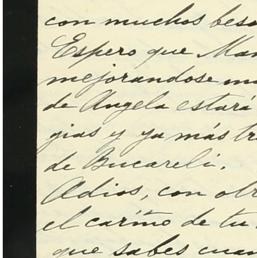 con muchos beso
Espero que Mar
mejorandose mu
de Angela estará
gias y ya más tr
de Bucareli.
Adios, con otr
el cariño de tu
que sabes cuan